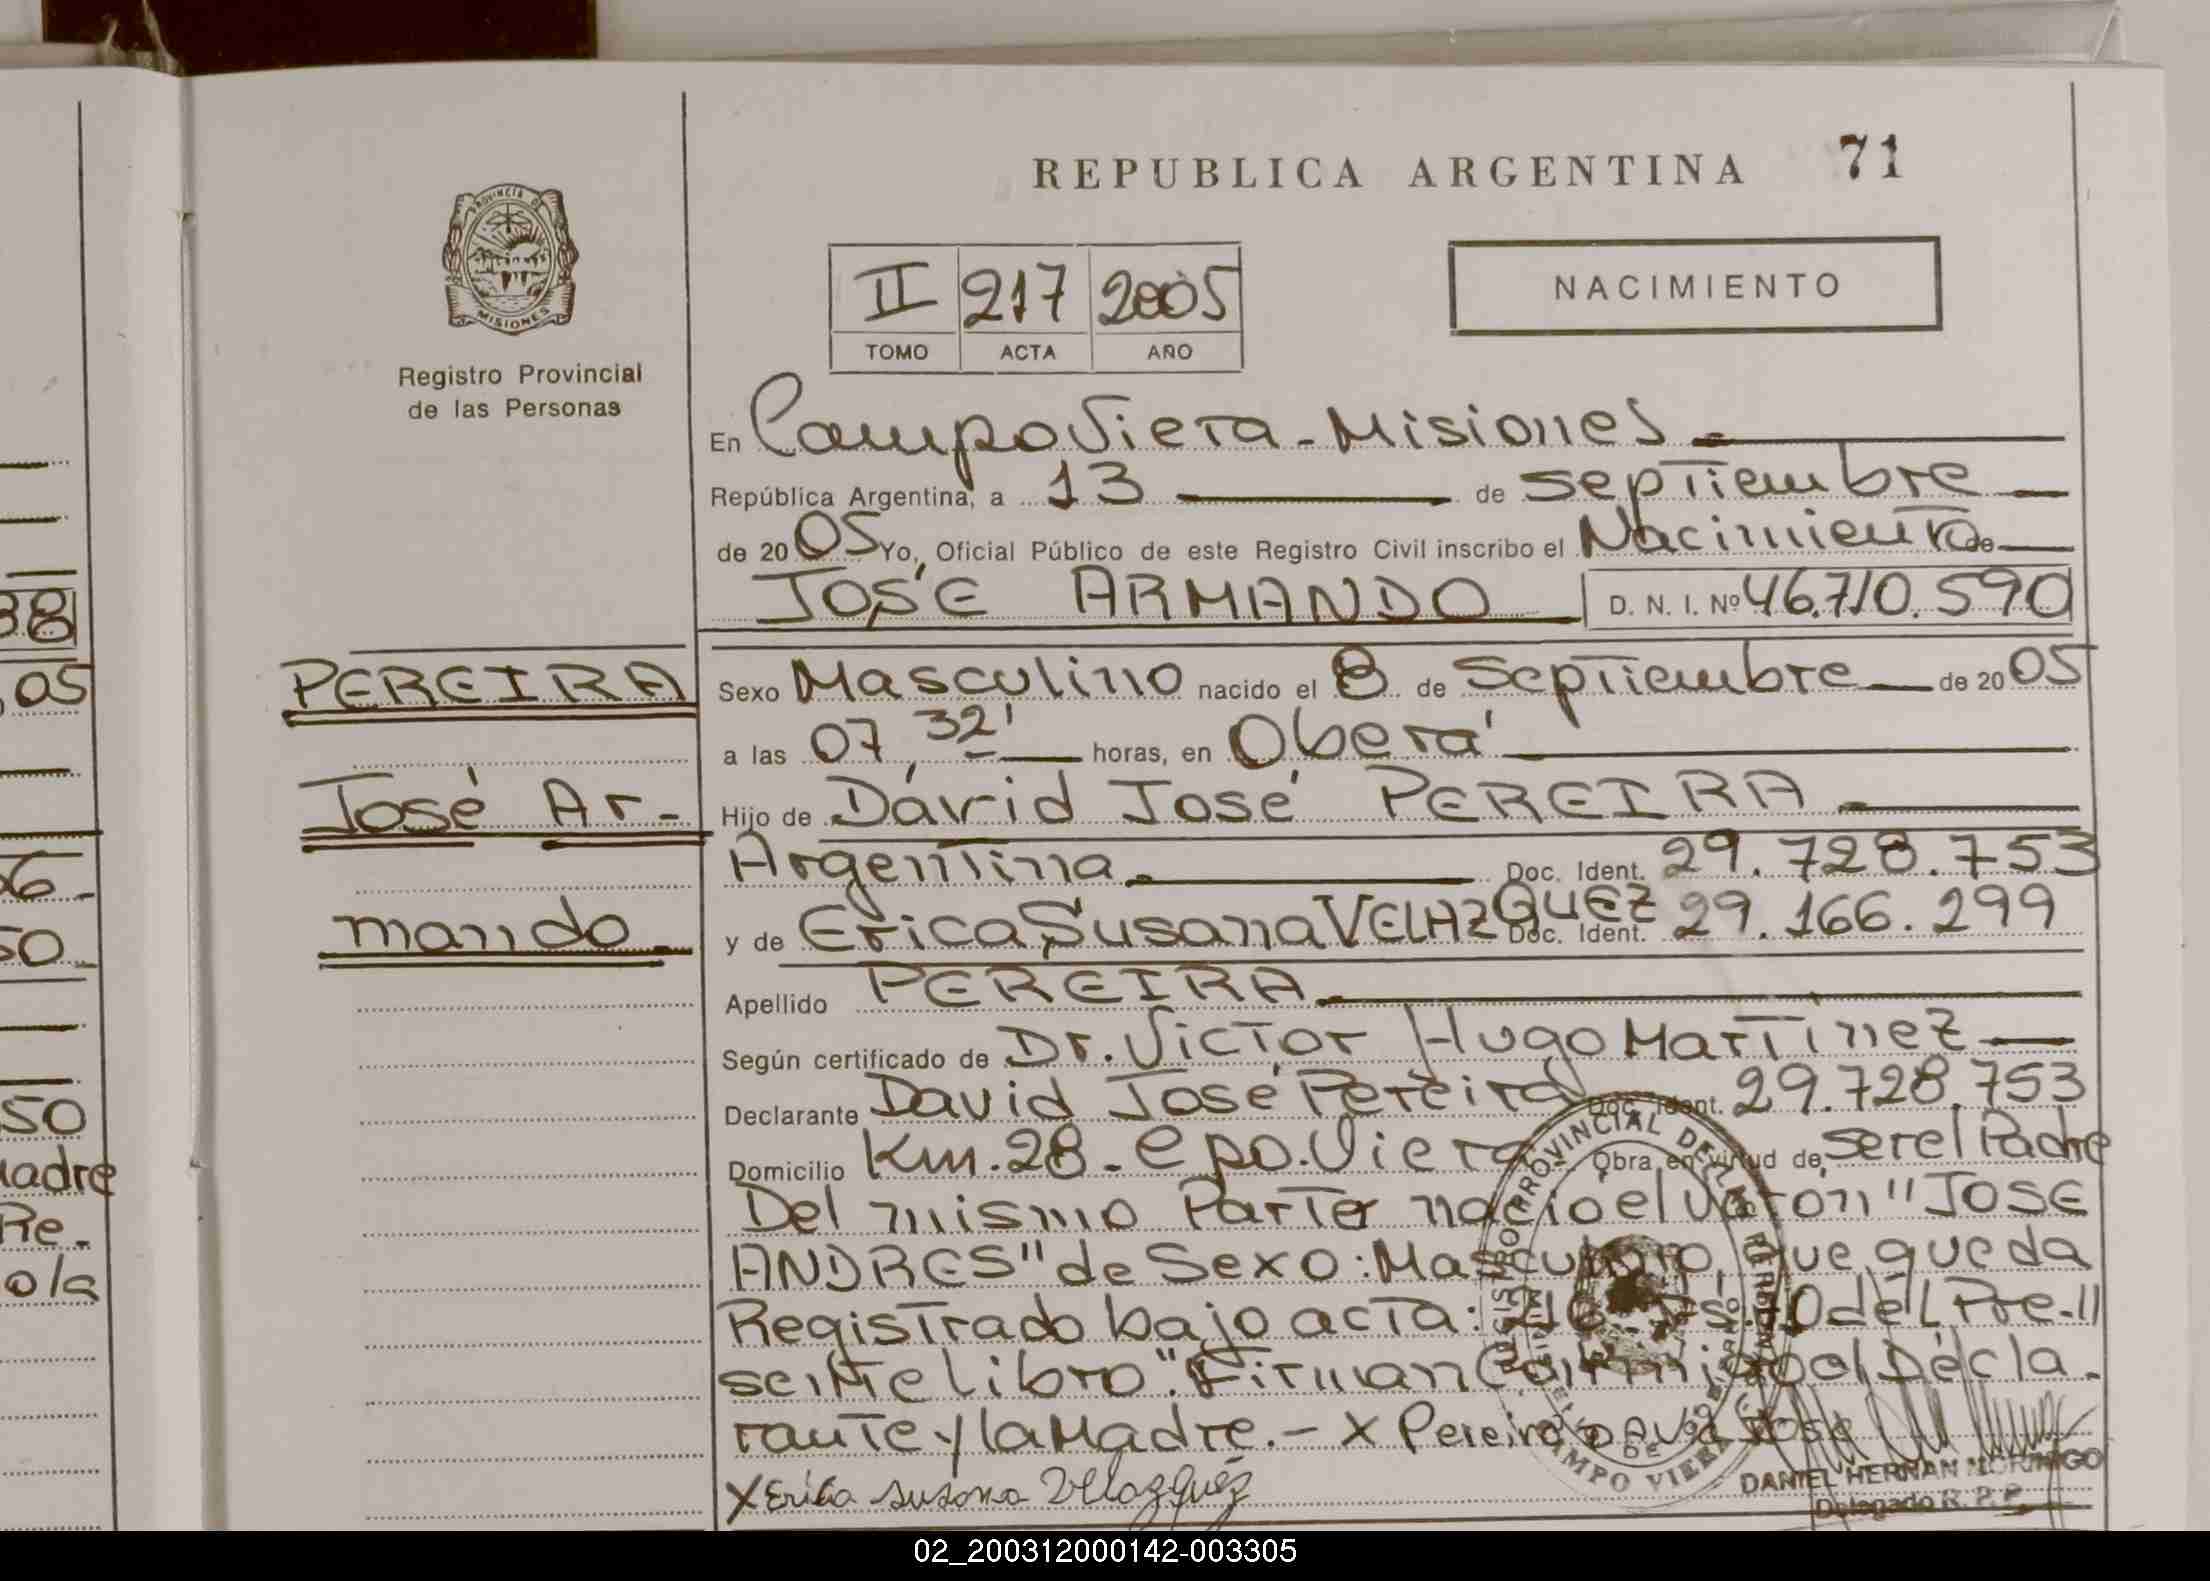 REPUBLICA ARGENTINA 71
PROVINCIA DE
MISIONES
Registro Provincial
de las Personas
II 217 2005
TOMO ACTA AÑO
NACIMIENTO
En Campo Viera - Misiones.
República Argentina, a 13 de septiembre
de 20 05 Yo, Oficial Público de este Registro Civil inscribo el Nacimiento de
JOSÉ ARMANDO D. N. I. Nº 46.710.590
PEREIRA
José Ar-
mando.
Sexo Masculino nacido el 8 de Septiembre de 20 05
a las 07, 32' horas, en Oberá
Hijo de David José PEREIRA.
Argentina. Doc. Ident. 29.728.753
y de Erica Susana VELAZQUEZ Doc. Ident. 29.166.299
Apellido PEREIRA
Según certificado de Dr. Victor Hugo Martinez
Declarante David José Pereira Doc. Ident. 29.728.753
Domicilio Km. 28 - Cpo. Viera Obra en virtud de ser el Padre
Del mismo Parto nacio el Varón "JOSE
ANDRES" de Sexo: Masculino, que queda
Registrado bajo acta: del Pre-
sente Libro". Firman Conmigo el Decla-
rante y la Madre.- X Pereira David Jose
X Erica Susana Velazquez
CAMPO VIERA
DANIEL HERNAN MORINIGO
Delegado R. P. P.
38
05
06-
50
50
Madre
Re-
ola
02_200312000142-003305